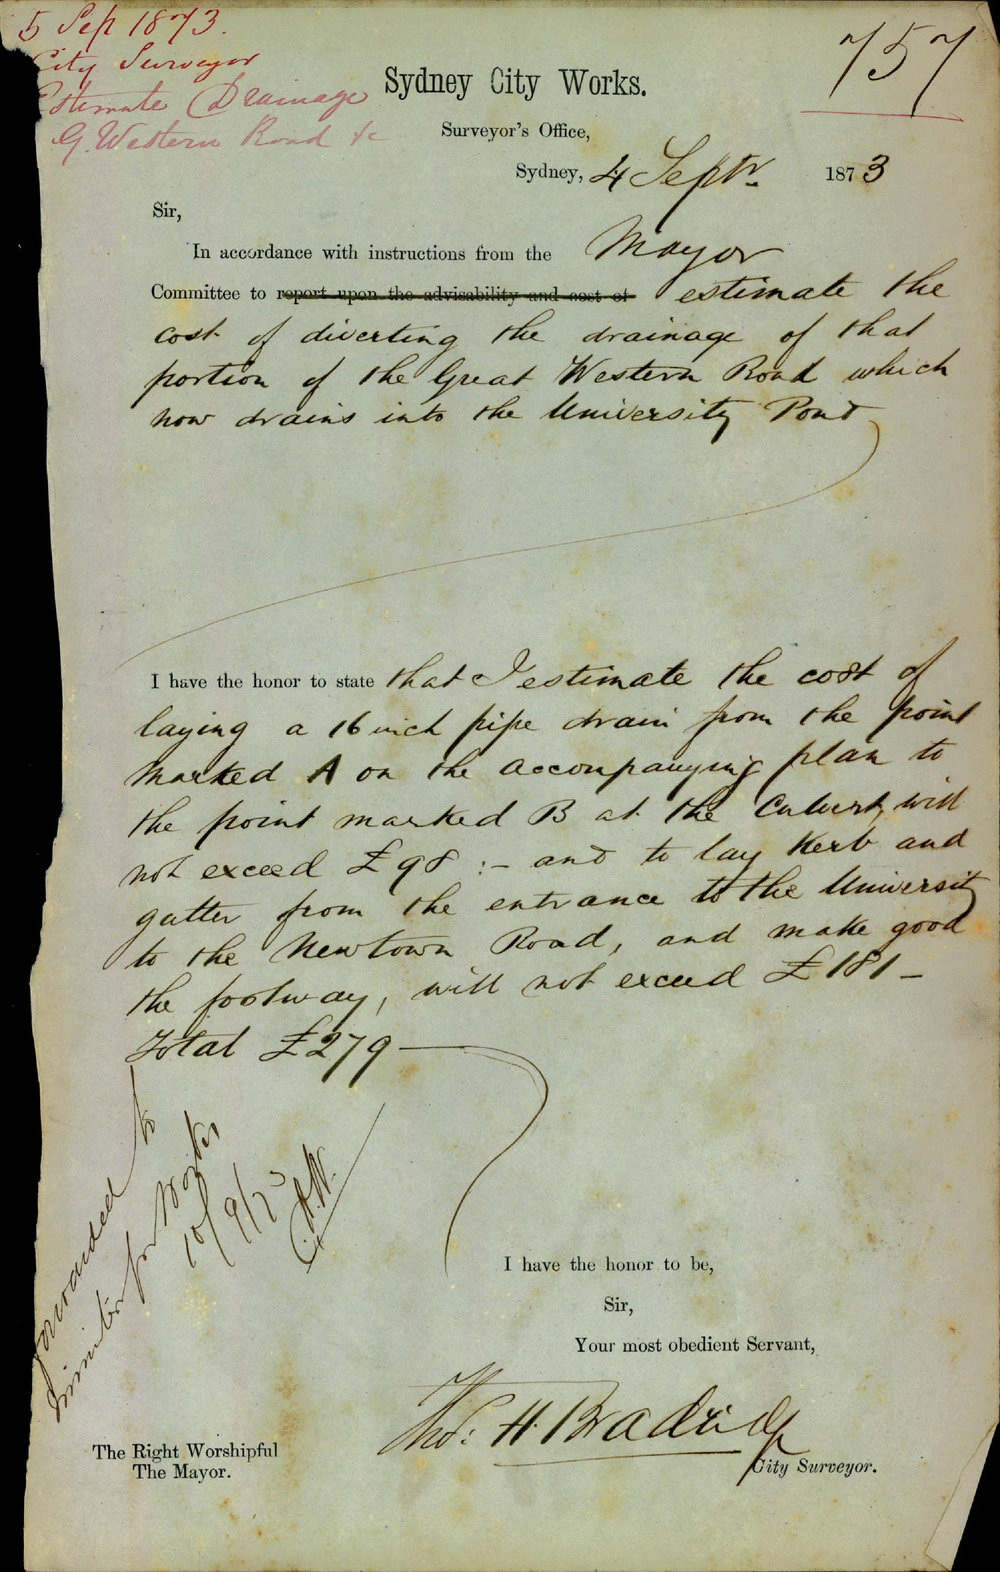 5 Sep 1873.
City Surveyor
Estimate Drainage
G. Western Road &c
757
Sydney City Works.
Surveyor's Office,
Sydney, 4 Septr. 1873
Sir,
In accordance with instructions from the Mayor
Committee to report upon the advisability and cost of estimate the
cost of diverting the drainage of that
portion of the Great Western Road which
now drains into the University Pond
I have the honor to state that I estimate the cost of
laying a 16 inch pipe drain from the point
marked A on the accompanying plan to
the point marked B at the Culvert, will
not exceed £98 :- and to lay Kerb and
gutter from the entrance to the University
to the Newtown Road, and make good
the footway, will not exceed £181-
Total £279
Forwarded to
Minister for Works
10/9/73
I have the honor to be,
Sir,
Your most obedient Servant,
Thos: H. Bradridge
City Surveyor.
The Right Worshipful
The Mayor.